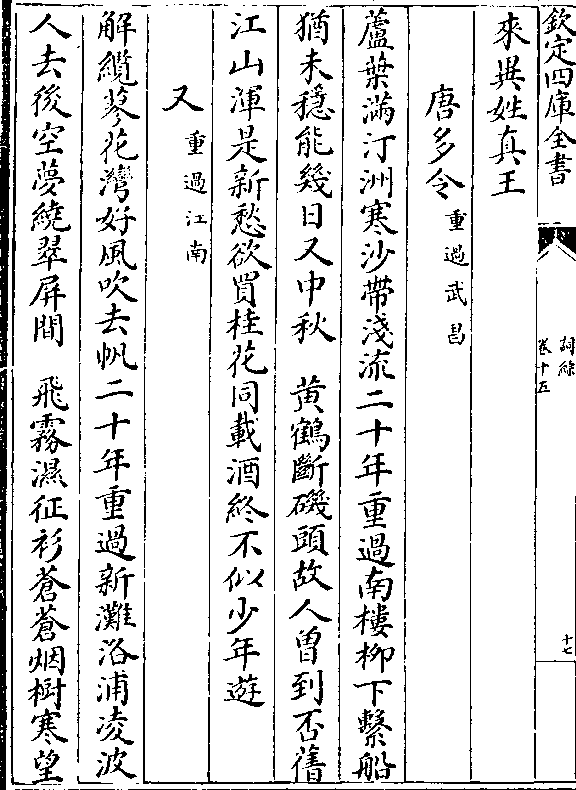 欽定四庫全書
詞綜
卷十五
十七
來異姓真王
唐多令重過武昌
蘆葉滿汀洲寒沙帶淺流二十年重過南樓柳下繫船
猶未穩能幾日又中秋　黄鶴斷磯頭故人曾到否舊
江山渾是新愁欲買桂花同載酒終不似少年遊
又重過江南
解纜蓼花灣好風吹去帆二十年重過新灘洛浦凌波
人去後空夢繞翠屏間　飛霧濕征衫蒼蒼烟樹寒望